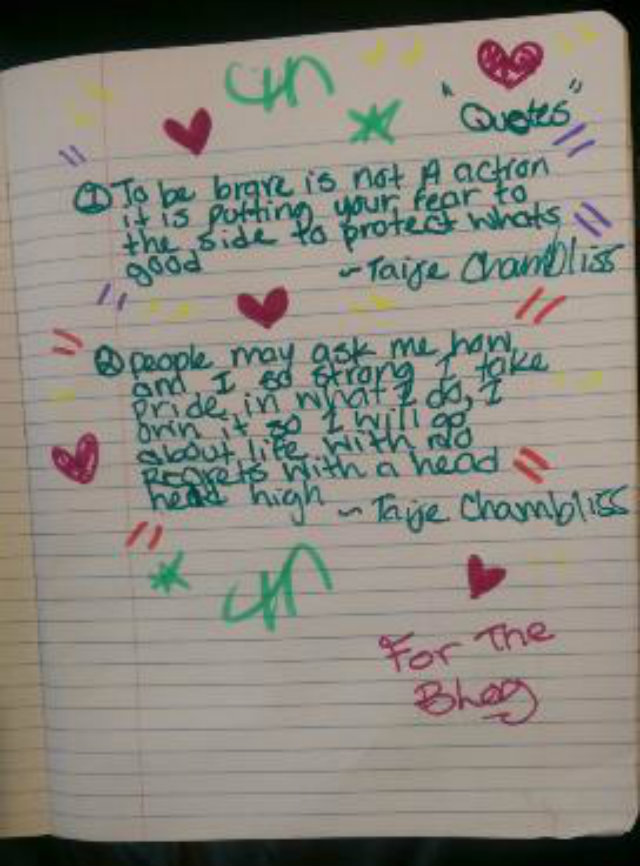 "Quotes"
① To be brave is not A action
it is putting your fear to
the side to protect whats
good ~ Taije Chambliss
② people may ask me how
and I so strong I take
pride in what I do, I
orin it so I will go
about life with no
Regrets with a head
head high ~ Taije Chambliss
For The